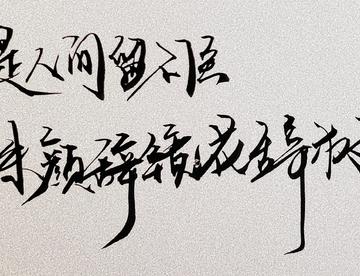 是人间留不住
朱颜辞镜花辞树